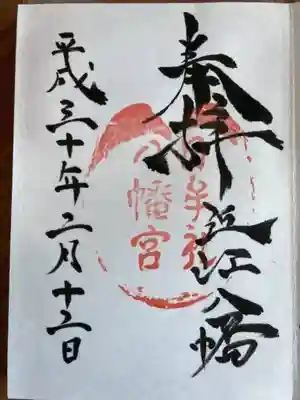 奉拝 近江八幡
八幡宮
平成三十年二月十二日